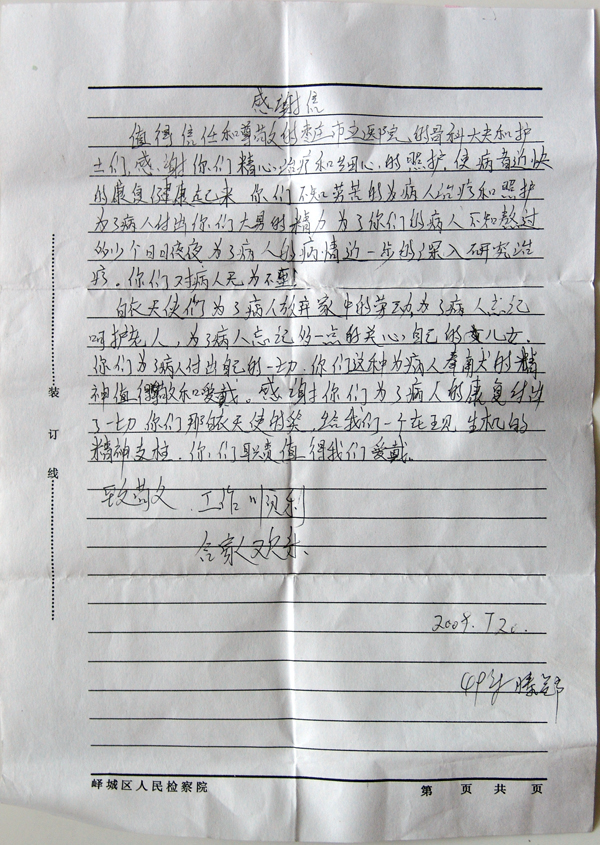 感谢信
值得信任和尊敬的枣庄市立医院的骨科大夫和护
士们,感谢你们精心治疗和细心的照护,使病者近快
的康复健康起来,你们不知劳苦的为病人治疗和照护
为了病人付出你们大男的精力为了你们的病人不知熬过
的少个日日夜夜为了病人的病情近一步的深入研究治
疗。你们对病人无为不至
白衣天使们为了病人放弃家中的劳动为了病人忘记
呵护老人,为了病人忘记的一点的关心自己的儿女
你们为了病人付出自己的一切,你们这种为病人的精
神值得敬和爱戴。感谢你们为了病人的康复付出
了一切你们那白衣天使的笑,给我们一个在现生机的
精神支柱,你们的职责值得我们爱戴。
致敬 工作顺利
合家人欢乐
7.20.
49年滕
装订线
峄城区人民检察院
第 页 共 页